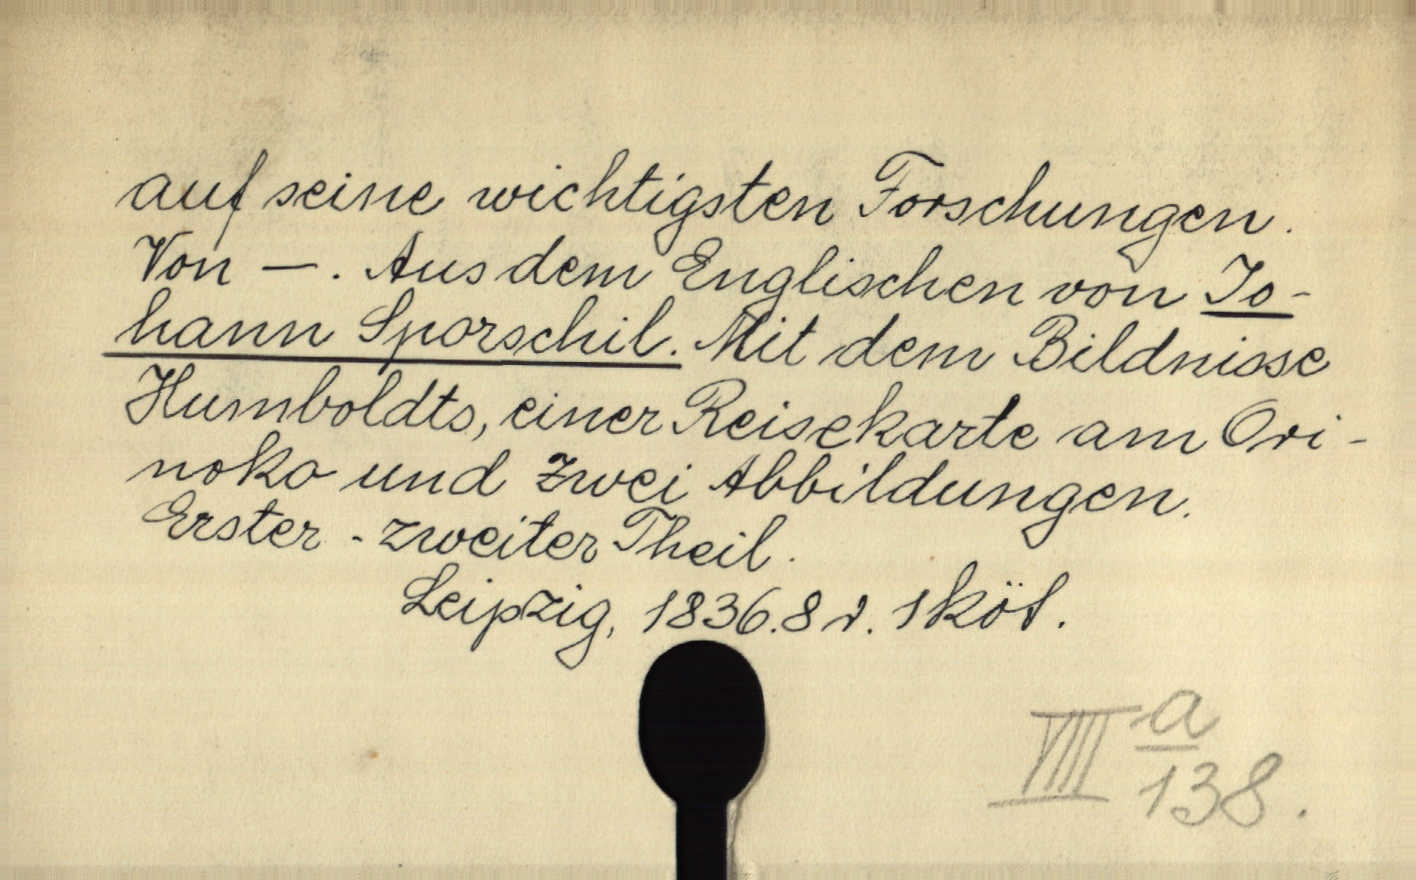 auf seine wichtigsten Forschungen.
Von —. Aus dem Englischen von Jo-
hann Sporschil. Mit dem Bildnisse
Humboldts, einer Reisekarte am Ori-
noko und zwei Abbildungen.
Erster - zweiter Theil.
Leipzig, 1836. 8 r. 1 köt.
VIII a
138.